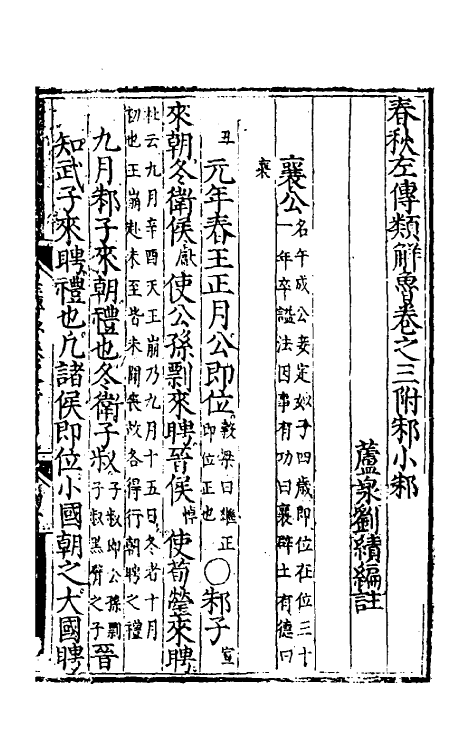 春秋左傳類解魯卷之三附邾小邾
蘆泉劉績編註
襄公名午成公妾定姒子四歲即位在位三十
一年卒謚法因事有功曰襄辟土有德曰
襄
丑元年春王正月公即位穀梁曰繼正
即位正也〇邾子宣
來朝冬衛侯獻使公孫剽來聘晉侯悼使荀罃來聘
杜云九月辛酉天王崩乃九月十五日冬者十月
初也王崩赴未至皆未聞喪故各得行朝聘之禮
九月邾子來朝禮也冬衛子叔子叔即公孫剽
子叔黑背之子晉
知武子來聘禮也凢諸侯即位小國朝之大國聘